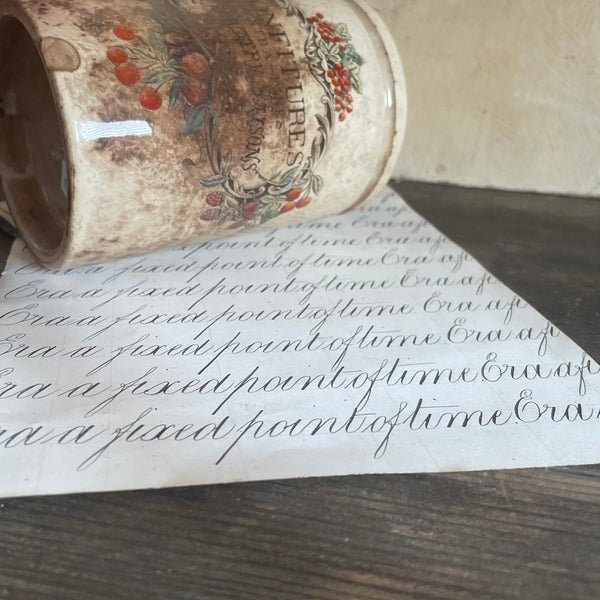 CONFITURES
Era a
a fixed point of time Era a fi
Era a fixed point of time Era a fi
Era a fixed point of time Era a fi
Era a fixed point of time Era a fi
Era a fixed point of time Era a fi
Era a fixed point of time Era a fi
ra a fixed point of time. Era a